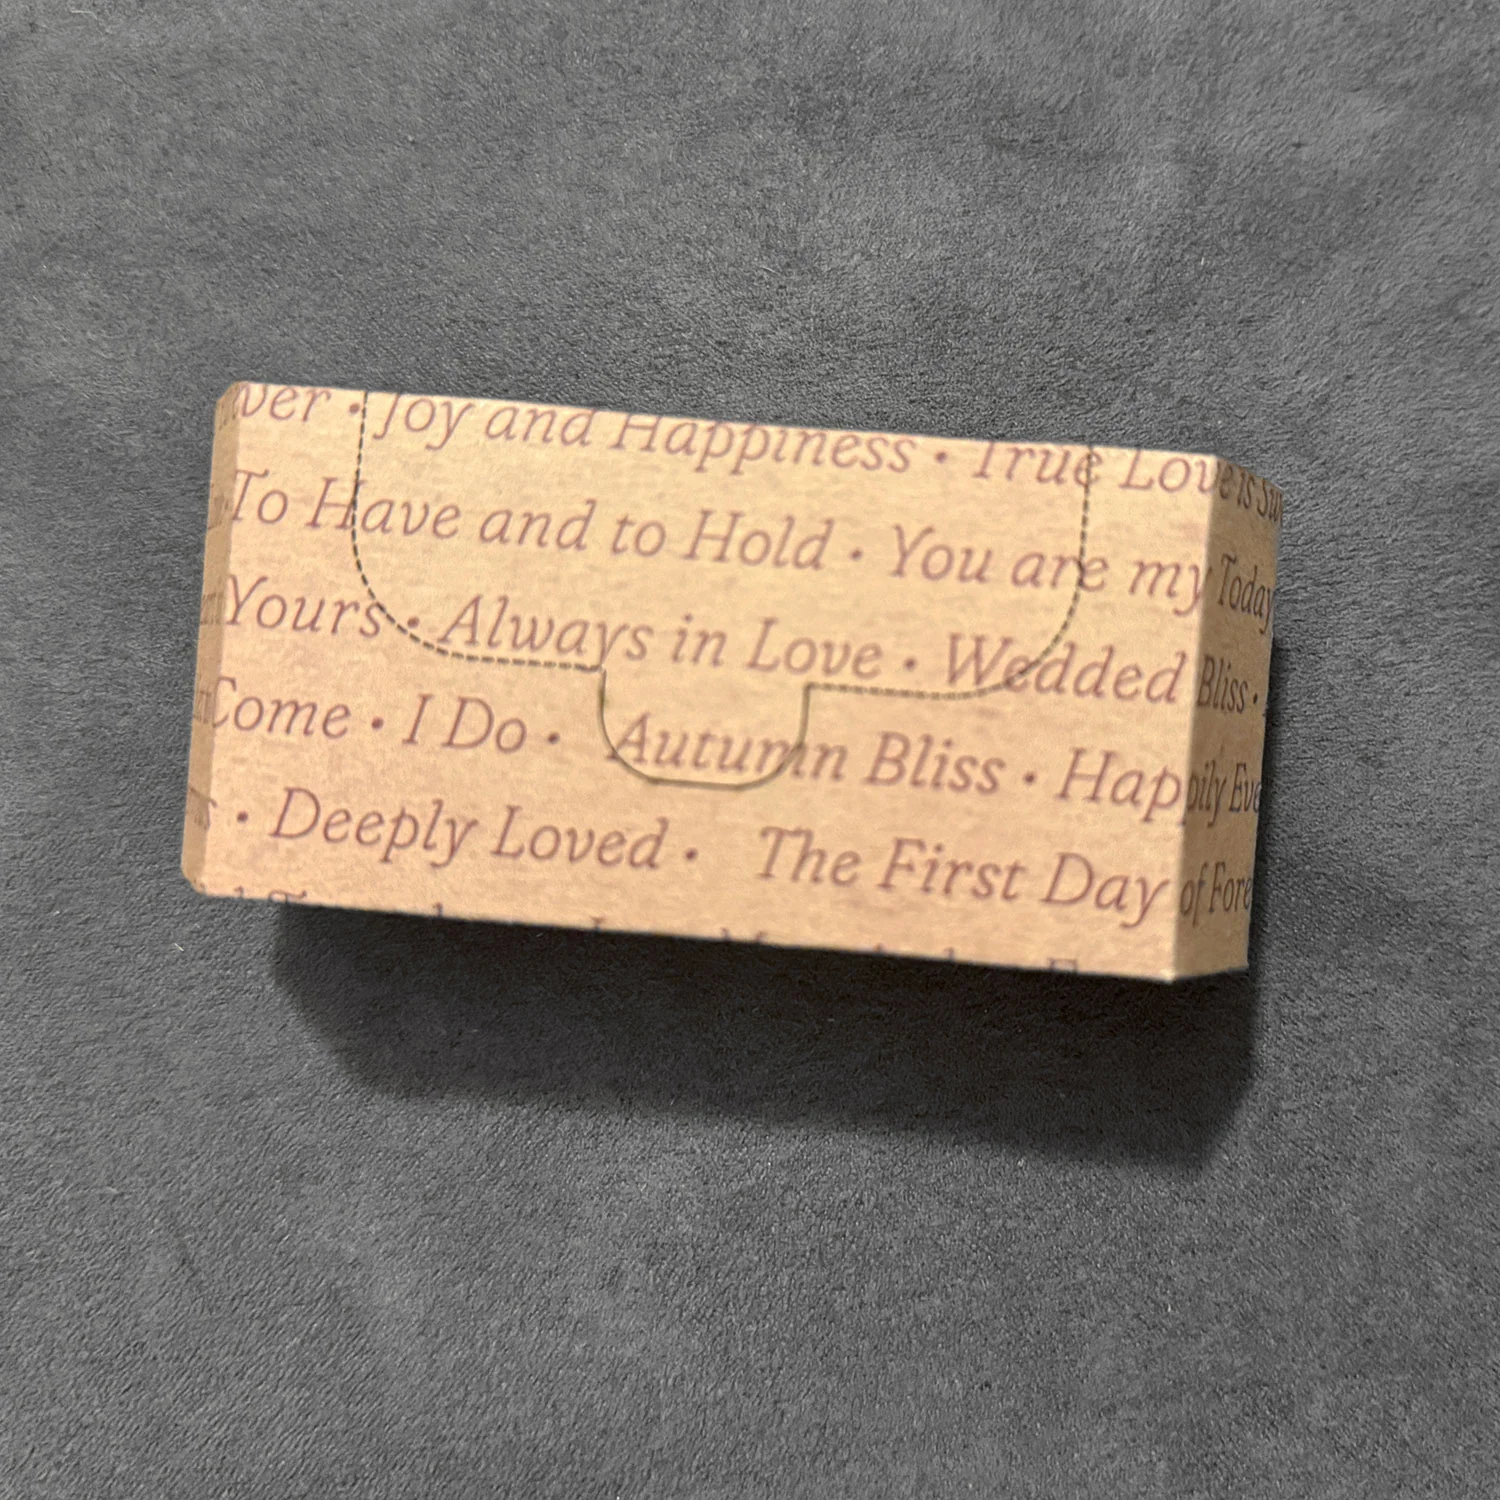 ver • Joy and Happiness • True Love is
To Have and to Hold • You are my Today
Yours • Always in Love • Wedded Bliss •
Come • I Do • Autumn Bliss • Happily Eve
• Deeply Loved • The First Day of Fore